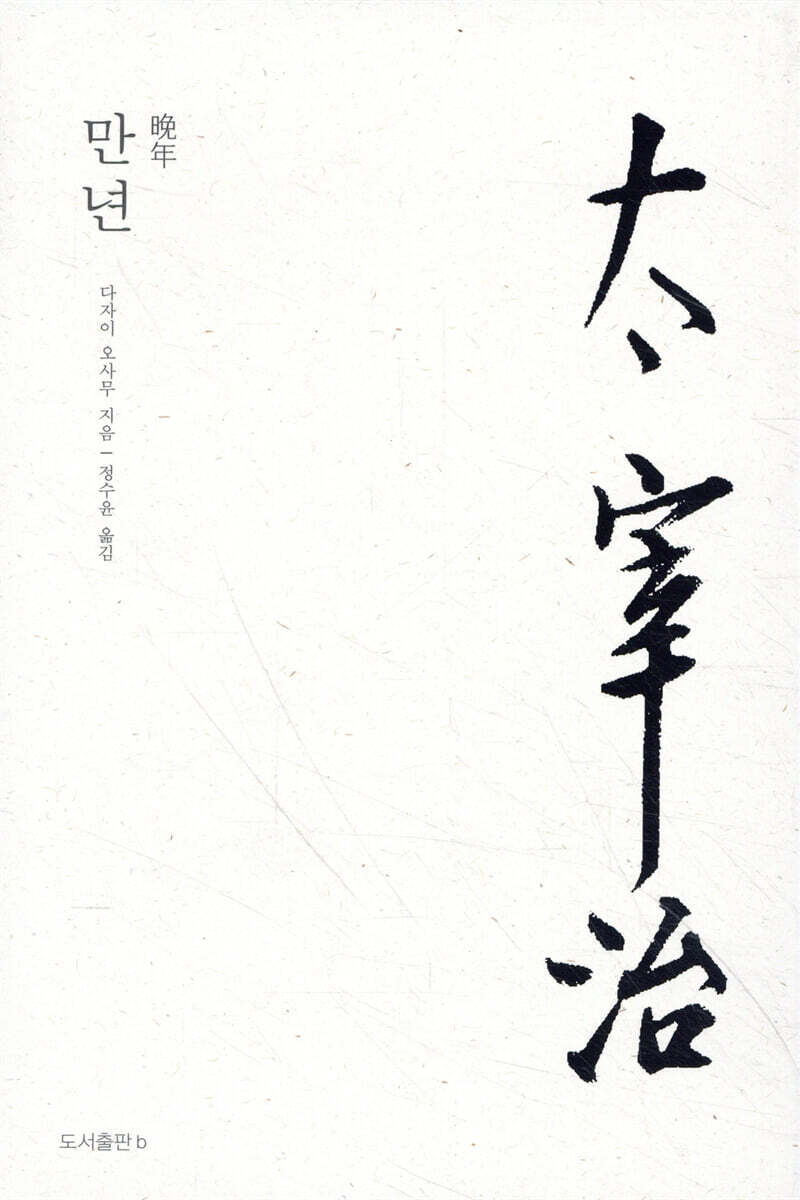 太宰治
晩年
만년
다자이 오사무 지음 — 정수윤 옮김
도서출판 b